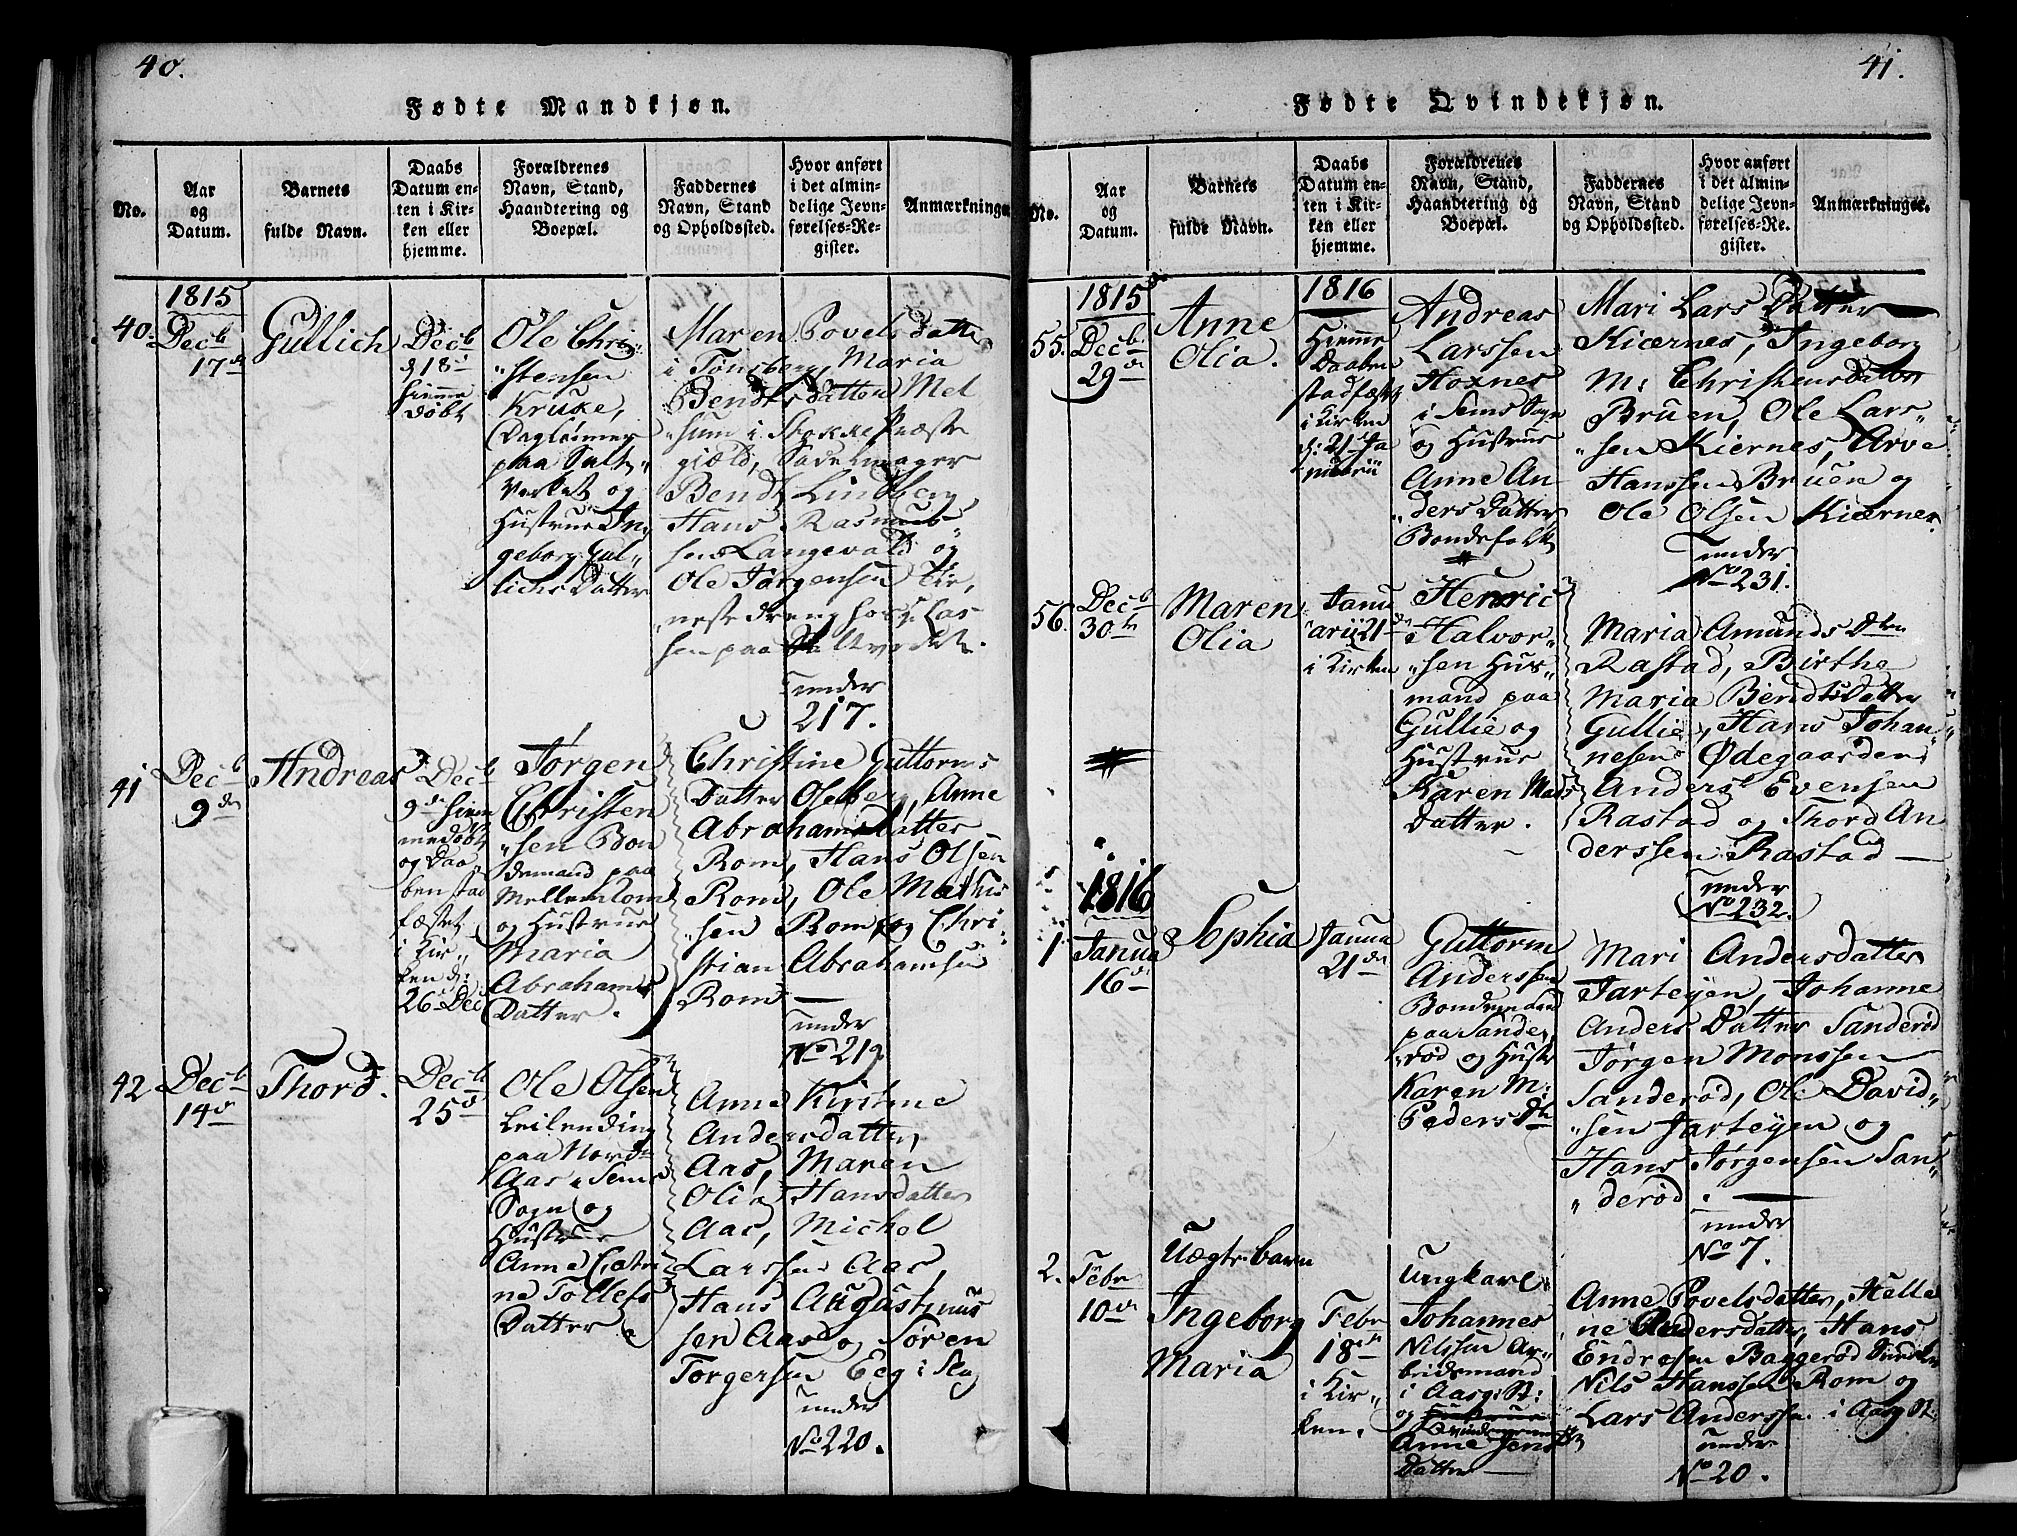 40.
Fødte Mandkjøn.
No.
Aar
og
Datum.
Barnets
fulde Navn.
Daabs
Datum en-
ten i Kir-
ken eller
hjemme.
Forældrenes
Navn, Stand,
Haandtering og
Boepæl.
Faddernes
Navn, Stand
og Opholdssted.
Hvor anført
i det almin-
delige Jevn-
førelses-Re-
gister.
Anmærkninge
1815
40.
Decb
17de
Gullich
Decb
d 18de
hiemme
døbt
Ole Chri
"stensen
Kruke,
Dagleiimer
paa Salt,,
Verket og
Hustrue In,
geborg Gul,,
lichs Datter
Maren Povels datter
i Tønsberg, Maria
Bendtsdatter Mel
"sum i Stokke Præste
giæld, Sadelmager
Bendt Lindberg,
Hans Rasmus"
sen Langevald og
Ole Jørgensen Tie,
neste dreng hos Las
sen paa Saltverket.
under
217.
41
Decb
9de
Andreas
Decb
9de hiem
medøbt
og Daa,,
ben stad
fæstet
i Kir,,
ken d:
26 Dec
Jørgen
Christen
"sen Bon
demand paa
Mellem Rom
og Hustrue
Maria
Abrahams
Datter.
Christine Guttorms
Datter Oleberg, Anne
Abrahamsdatter
Rom, Hans Olsen
Rom, Ole Mathis
"sen Rom og Chri,
stian Abrahamsen
Rom —
under
No 219
42
Decb
14de
Thord.
Decb
25de
Ole Olsen
Leilending
paa Nordre
Aas i Sems
Sogn og
Hustrue
Anne Catri
ne Tollefs
Datter
Anne Kirstine
Andersdatter
Aas, Maren
Olia Hansdatter
Aas, Michel
Larssen Aas,
Hans Augustinus
sen Aas og Søren
Torgersen Eeg i Slag
under
No 220.
41.
Fødte Qvindekjøn.
No.
Aar
og
Datum.
Barnets
fulde Navn.
Daabs
Datum en-
ten i Kir-
ken eller
hjemme.
Forældrenes
Navn, Stand,
Haandtering og
Boepæl.
Faddernes
Navn, Stand
og Opholdssted.
Hvor anført
i det almin-
delige Jevn-
førelses-Re-
gister.
Anmærkninge.
1815
55.
Decb.
29de
Anne
Olia.
1816
Hiemme
Daaben
stadfæst
i Kirken
d: 21de Ja
nuarii
Andreas
Larssen
Hoxnes
i Sems Sogn
og Hustrue
Anne An
"ders Datter
Bondefolk
Mari Lars Datter
Kiærnes, Ingeborg
M: Christensdatter
Bruen, Ole Lars,,
"sen Kiernes, Arve
Hanssen Bruen og
Ole Olsen Kiærnes.
under
No 231.
56.
Decb
30te
Maren
Olia
Janu
arii 21de
i Kirken
Henric
Halvor,,
"sen Hus,,
mand paa
Gullie og
Hustrue
Karen Mads
Datter.
Maria Amunds Dten
Rastad, Birthe
Maria Bendts Datter
Gullie, Hans Johan,,
nesen Ødegaarden
Anders Evensen
Rastad og Thord An
derssen Rastad —
under
No 232.
1816
1
Janua
16de
Sophia
Janua
21de
Guttorm
Anderssen
Bondemand
paa Sande,
"rød og Hustr
Karen M:
Peders Dtr
Mari Andersdatter
Jarteyen, Johanne
Anders Datter Sanderød
Jørgen Monssen
Sanderød, Ole David,,
"sen Jarteyen og
Hans Jørgensen San,,
"derød. —
under
No 7.
2.
Febr
10de
Uægte barn
Ingeborg
Maria
Febr
18de
i Kir,,
ken.
Ungkarl
Johannes
Nilssen Ar,,
beidsmand
i Aasg: St:
og Hustrue
Qvindemennsk
Anne Jens
Datter —
Anne Povelsdatter, Helle
ne Andersdatter, Hans
Endresen Baggerød
Nils Hanssen Rom og
Lars Anderssen i Aasg St:
under
No 20.